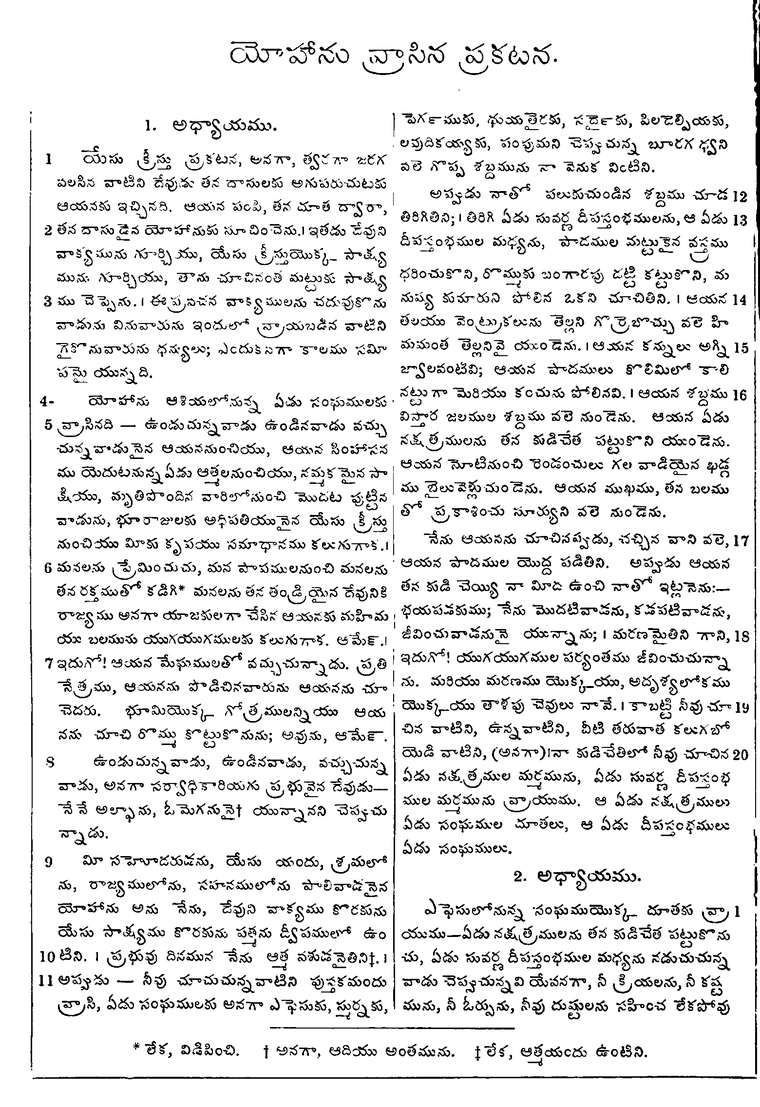 యోహాను వ్రాసిన ప్రకటన.
1. అధ్యాయము.
1 యేసు క్రీస్తు ప్రకటన, అనగా, త్వరగా జరగ
వలసిన వాటిని దేవుడు తన దాసులకు అనుపరుచుటకు
ఆయనకు ఇచ్చినది. ఆయన పంపి, తన దూత ద్వారా,
2 తన దాసుడైన యోహానుకు సూచించెను. । ఇతడు దేవుని
వాక్యమును గూర్చియు, యేసు క్రీస్తుయొక్క సాక్ష్య
మును గూర్చియు, తాను చూచినంత మట్టుకు సాక్ష్య
3 ము చెప్పెను. । ఈ ప్రవచన వాక్యములను చదువుకొను
వాడును వినువారును ఇందులో వ్రాయబడిన వాటిని
గైకొనువారును ధన్యులు; ఎందుకనగా కాలము సమీ
పమై యున్నది.
4- యోహాను ఆశియలోనున్న ఏడు సంఘములకు
5 వ్రాసినది — ఉండుచున్నవాడు ఉండినవాడు వచ్చు
చున్నవాడునైన ఆయననుంచియు, ఆయన సింహాసన
ము యెదుటనున్న ఏడు ఆత్మలనుంచియు, నమ్మకమైన సా
క్షియు, మృతిపొందిన వారిలోనుంచి మొదట పుట్టిన
వాడును, భూరాజులకు అధిపతియునైన యేసు క్రీస్తు
నుంచియు మీకు కృపయు సమాధానము కలుగుగాక. ।
6 మనలను ప్రేమించుచు, మన పాపములనుంచి మనలను
తన రక్తముతో కడిగి* మనలను తన తండ్రియైన దేవునికి
రాజ్యము అనగా యాజకులగా చేసిన ఆయనకు మహిమ
యు బలమును యుగయుగములకు కలుగుగాక. ఆమేఽ. ।
7 ఇదుగో! ఆయన మేఘములతో వచ్చుచున్నాడు. ప్రతి
నేత్రము, ఆయనను పొడిచినవారును ఆయనను చూ
చెదరు. భూమియొక్క గోత్రములన్నియు ఆయ
నను చూచి రొమ్ము కొట్టుకొనును; అవును, ఆమేఽ.
8 ఉండుచున్నవాడు, ఉండినవాడు, వచ్చుచున్న
వాడు, అనగా సర్వాధికారియగు ప్రభువైన దేవుడు—
నేనే అల్ఫాను, ఓమెగనునై† యున్నానని చెప్పుచు
న్నాడు.
9 మీ సహోదరుడను, యేసు యందు, శ్రమలో
ను, రాజ్యములోను, సహనములోను పాలివాడనైన
యోహాను అను నేను, దేవుని వాక్యము కొరకును
యేసు సాక్ష్యము కొరకును పత్మను ద్వీపములో ఉం
10 టిని. । ప్రభువు దినమున నేను ఆత్మ వశుడనైతిని‡. ।
11 అప్పుడు — నీవు చూచుచున్నవాటిని పుస్తకమందు
వ్రాసి, ఏడు సంఘములకు అనగా ఎఫెసుకు, స్ముర్నకు,
పెర్గముకు, థుయతైరకు, సర్దైకు, పిలదెల్పియకు,
లవుదికయ్యకు, పంపుమని చెప్పుచున్న బూరగ ధ్వని
వలె గొప్ప శబ్దమును నా వెనుక వింటిని.
అప్పుడు నాతో పలుకుచుండిన శబ్దము చూడ 12
తిరిగితిని; । తిరిగి ఏడు సువర్ణ దీపస్తంభములను, ఆ ఏడు 13
దీపస్తంభముల మధ్యను, పాదముల మట్టుకైన వస్త్రము
ధరించుకొని, రొమ్ముకు బంగారపు దట్టి కట్టుకొని, మ
నుష్య కుమారుని పోలిన ఒకని చూచితిని. । ఆయన 14
తలయు వెంట్రుకలును తెల్లని గొర్రెబొచ్చు వలె హి
మమంత తెల్లనివై యుండెను. । ఆయన కన్నులు అగ్ని 15
జ్వాలవంటివి; ఆయన పాదములు కొలిమిలో కాలి
నట్టుగా మెరియు కంచును పోలినవి. । ఆయన శబ్దము 16
విస్తార జలముల శబ్దము వలె నుండెను. ఆయన ఏడు
నక్షత్రములను తన కుడిచేత పట్టుకొని యుండెను.
ఆయన నోటినుంచి రెండంచులు గల వాడియైన ఖడ్గ
ము బైలువెళ్లుచుండెను. ఆయన ముఖము, తన బలము
తో ప్రకాశించు సూర్యుని వలె నుండెను.
నేను ఆయనను చూచినప్పుడు, చచ్చిన వాని వలె, 17
ఆయన పాదముల యొద్ద పడితిని. అప్పుడు ఆయన
తన కుడి చెయ్యి నా మీద ఉంచి నాతో ఇట్లనెను:—
భయపడకుము; నేను మొదటివాడను, కడపటివాడను,
జీవించువాడనునై యున్నాను; । మరణమైతిని గాని, 18
ఇదుగో! యుగయుగముల పర్యంతము జీవించుచున్నా
ను. మరియు మరణము యొక్కయు, అదృశ్యలోకము
యొక్కయు తాళపు చెవులు నావే. । కాబట్టి నీవు చూ 19
చిన వాటిని, ఉన్నవాటిని, వీటి తరువాత కలుగబో
యెడి వాటిని, (అనగా) । నా కుడిచేతిలో నీవు చూచిన 20
ఏడు నక్షత్రముల మర్మమును, ఏడు సువర్ణ దీపస్తంభ
ముల మర్మమును వ్రాయుము. ఆ ఏడు నక్షత్రములు
ఏడు సంఘముల దూతలు, ఆ ఏడు దీపస్తంభములు
ఏడు సంఘములు.
2. అధ్యాయము.
ఎఫెసులోనున్న సంఘముయొక్క దూతకు వ్రా 1
యుము—ఏడు నక్షత్రములను తన కుడిచేత పట్టుకొను
చు, ఏడు సువర్ణ దీపస్తంభముల మధ్యను నడుచుచున్న
వాడు చెప్పుచున్నవి యేవనగా, నీ క్రియలను, నీ కష్ట
మును, నీ ఓర్పును, నీవు దుష్టులను సహించ లేకపోవు
* లేక, విడిపించి. † అనగా, ఆదియు అంతమును. ‡ లేక, ఆత్మయందు ఉంటిని.